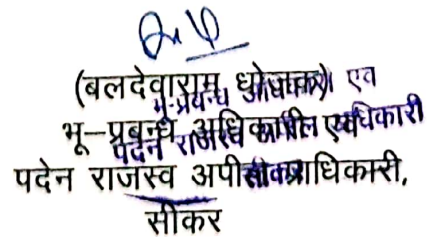 (बलदेवाराम धोजक)
भू–प्रबन्ध अधिकारी एवं
पदेन राजस्व अपील प्राधिकारी,
सीकर